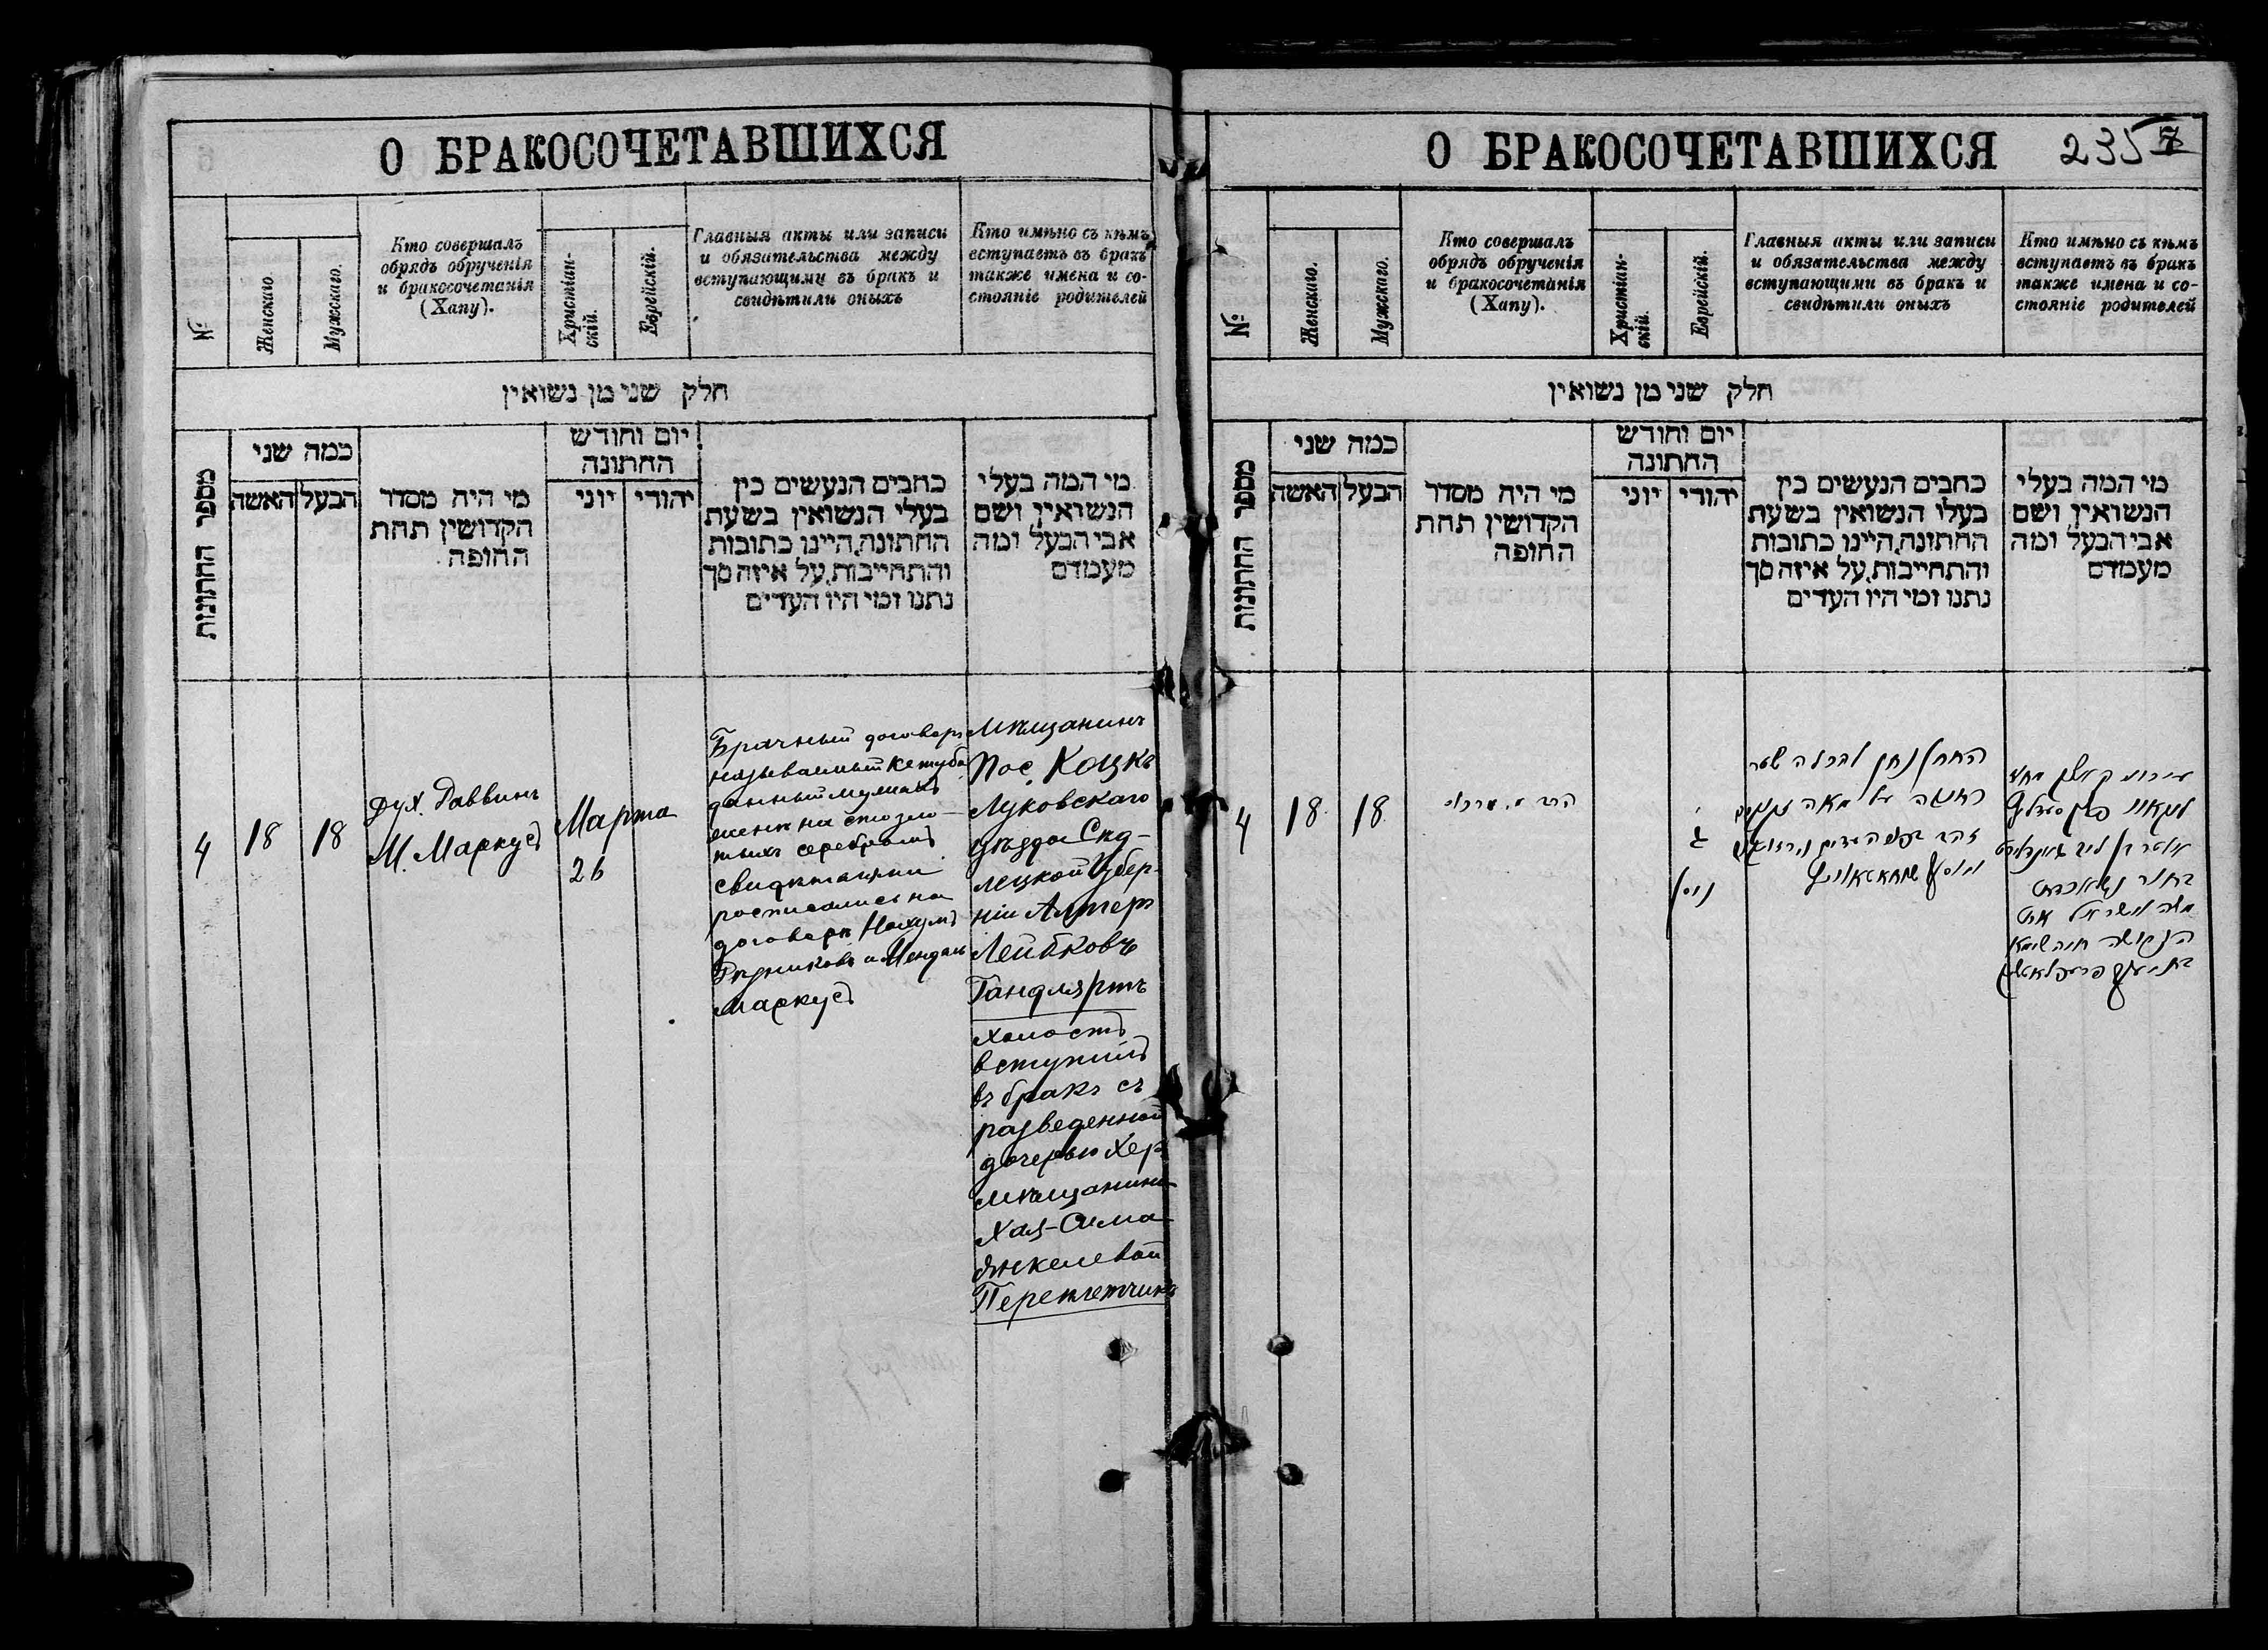 О БРАКОСОЧЕТАВШИХСЯ
№
Женскаго
Мужскаго.
Кто совершалъ
обрядъ обрученія
и бракосочетанія
(Хапу).
Христіан-
скій.
Еврейскій.
Главныя акты или записи
и обязательства между
вступающими въ бракъ и
свидѣтили оныхъ
Кто имѣно съ кѣмъ
вступаетъ въ бракъ
также имена и со-
стояніе родителей
חלק שני מן נשואין
מספר החתונות
כמה שני
האשה
הבעל
מי היה מסדר
הקדושין תחת
החופה
יום וחודש
החתונה
יוני
יהודי
כתבים הנעשים בין
בעלי הנשואין בשעת
החתונה, היינו כתובות
והתחייבות, על איזה סך
נתנו ומי היו העדים
מי המה בעלי
הנשואין ושם
אבי הבעל ומה
מעמדם
4
18
18
Дух. Раввинъ
М. Маркусъ
Марта
26
Брачный договоръ
называемый кетуба
данный мужемъ
женѣ на сто зло-
тыхъ серебромъ
свидѣтелями
росписались на
договорѣ Нахумъ
и Мендель
Маркусъ
Мѣщанинъ
Пос. Коцкъ
Луковскаго
уѣзда Сѣд-
лецкой Губер-
ніи Алтеръ
Лейбковъ
Гандляртъ
холостъ
вступилъ
въ бракъ съ
разведенной
дочерью Хер.
мѣщанина
Хая-Сима
Янкелевой
Переплетчикъ
О БРАКОСОЧЕТАВШИХСЯ
235
7
№
Женскаго.
Мужскаго.
Кто совершалъ
обрядъ обрученія
и бракосочетанія
(Хапу).
Христіан-
скій.
Еврейскій.
Главныя акты или записи
и обязательства между
вступающими въ бракъ и
свидѣтили оныхъ
Кто имѣно съ кѣмъ
вступаетъ въ бракъ
также имена и со-
стояніе родителей
חלק שני מן נשואין
מספר החתונות
כמה שני
האשה
הבעל
מי היה מסדר
הקדושין תחת
החופה
יום וחודש
החתונה
יוני
יהודי
כתבים הנעשים בין
בעלי הנשואין בשעת
החתונה, היינו כתובות
והתחייבות, על איזה סך
נתנו ומי היו העדים
מי המה בעלי
הנשואין ושם
אבי הבעל ומה
מעמדם
4
18
18
ניסן
החתן נתן להכלה שטר
כתובה על מאה זקוקים